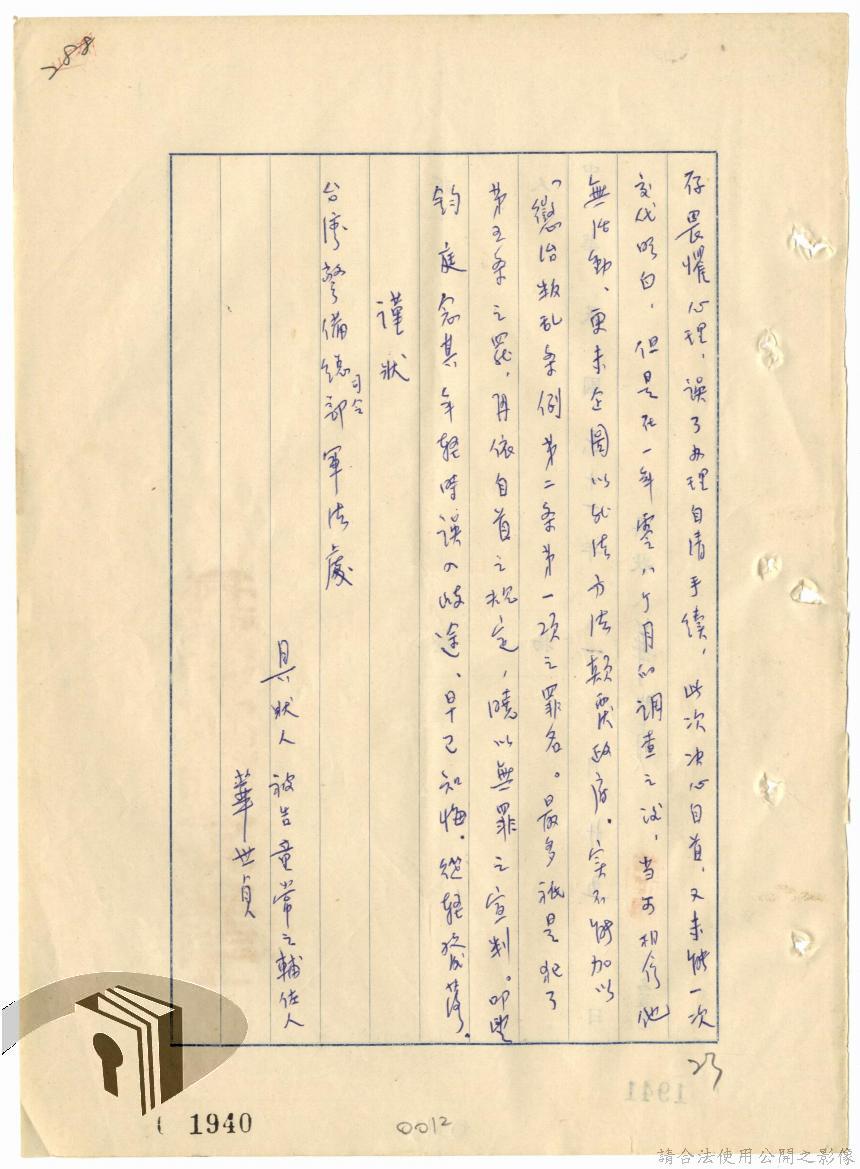 288
存畏懼心理，誤了办理自清手續，此次决心自首，又未能一次
交代明白，但是在一年零八个月的調查之後，当可相信他
無活動、更未企圖以非法方法顛覆政府。实不能加以
「懲治叛乱条例第二条第一項之罪名。最多祇是犯了
第五条之罪，再依自首之規定，曉以無罪之宣判。叩望
鈞庭念其年輕時誤入歧途、早已知悔。從輕發落。
謹狀
台灣警備總司令部軍法處
具狀人 被告童常之輔佐人
華世貞
23
1941
1940
0012
請合法使用公開之影像